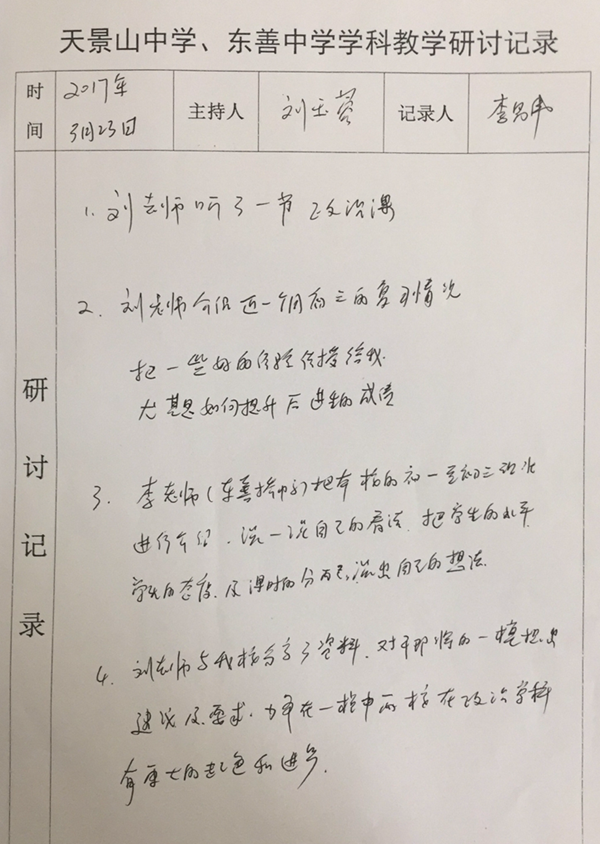 天景山中学、东善中学学科教学研讨记录
时间 2017年3月23日 主持人 刘玉蓉 记录人 李昌
研讨记录
1. 刘老师听了一节政治课
2. 刘老师介绍近一个月初三的复习情况
把一些好的经验传授给我.
尤其是如何提升后进生的成绩
3. 李老师(东善)把本校的初一至初三
进行介绍、谈一谈自己的看法、把学生的水平
学生的态度、及课时的分配、说出自己的想法.
4. 刘老师与我校分享了资料、对于即将的一模提出
建议及要求、力争在一模中两校在政治学科
有更大的起色和进步.